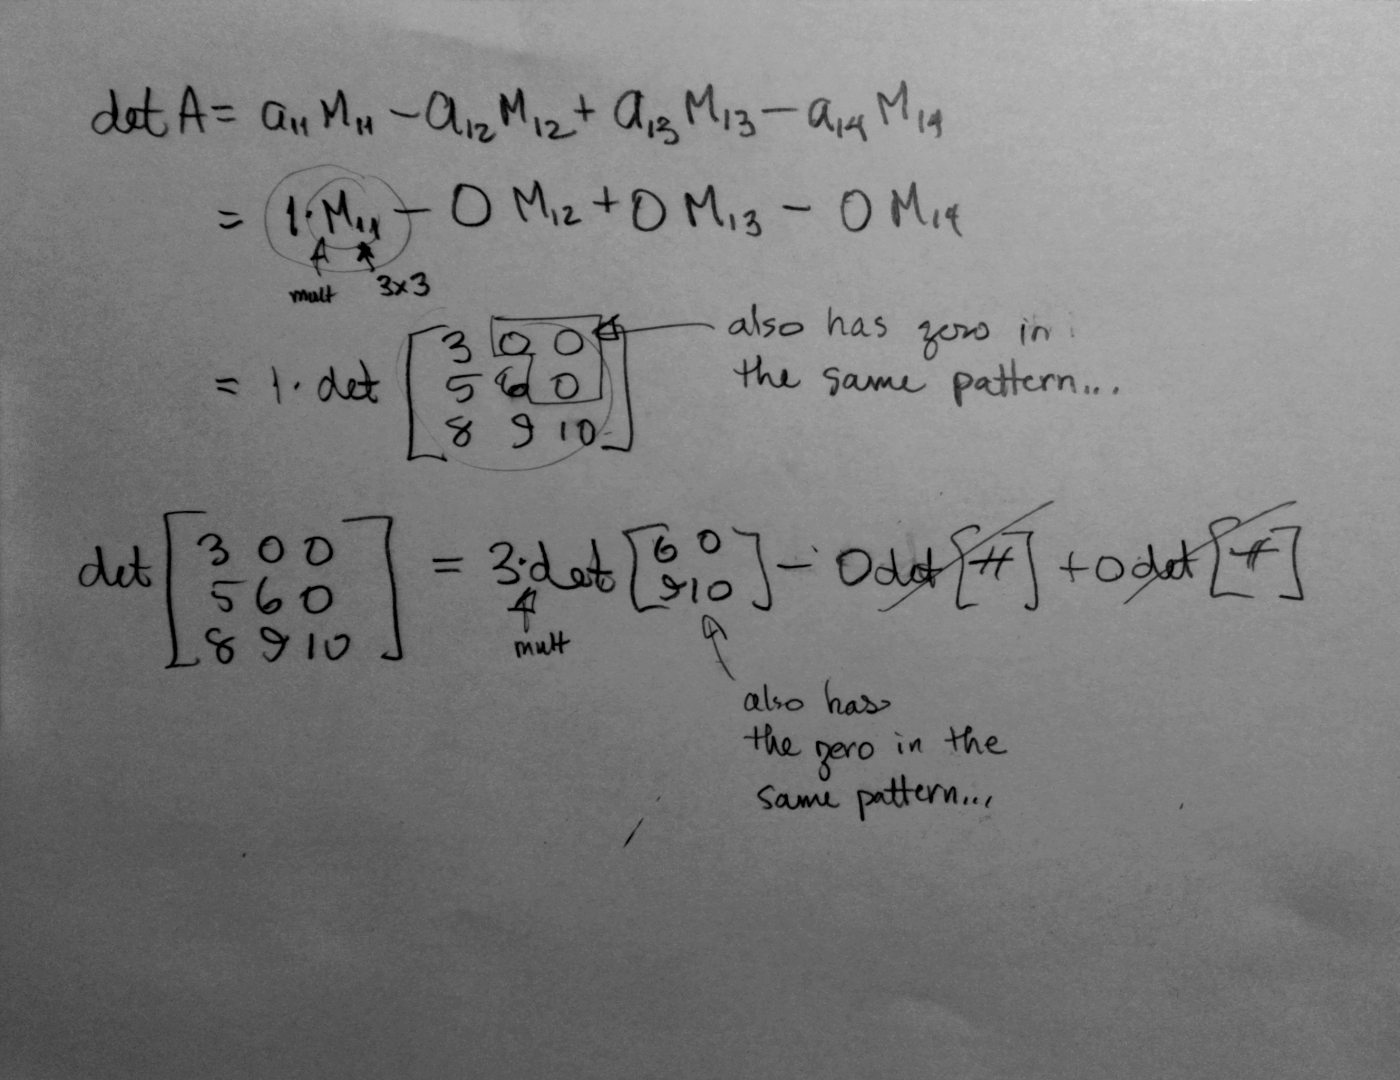 det A = a₁₁ M₁₁ − a₁₂ M₁₂ + a₁₃ M₁₃ − a₁₄ M₁₄
= 1·M₁₁ − 0 M₁₂ + 0 M₁₃ − 0 M₁₄
mult 3×3
also has zero in
the same pattern...
= 1· det [3 0 0
5 6 0
8 9 10]
det [3 0 0
5 6 0
8 9 10] = 3·det [6 0
9 10] − 0 det [#] + 0 det [#]
mult
also has
the zero in the
same pattern...